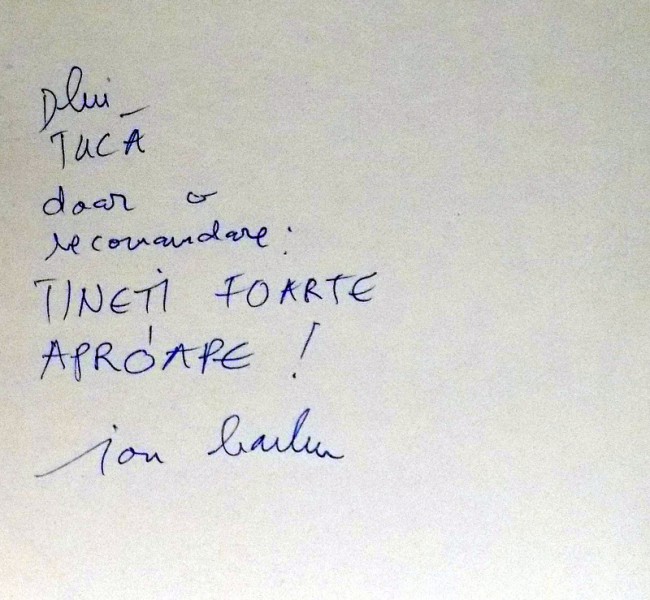 Dlui
TUCĂ
doar o
recomandare:
ȚINEȚI FOARTE
APROAPE !
ion barbu